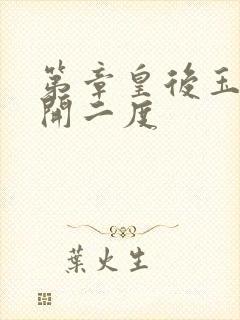 第章皇後玉
開二度
葉火生